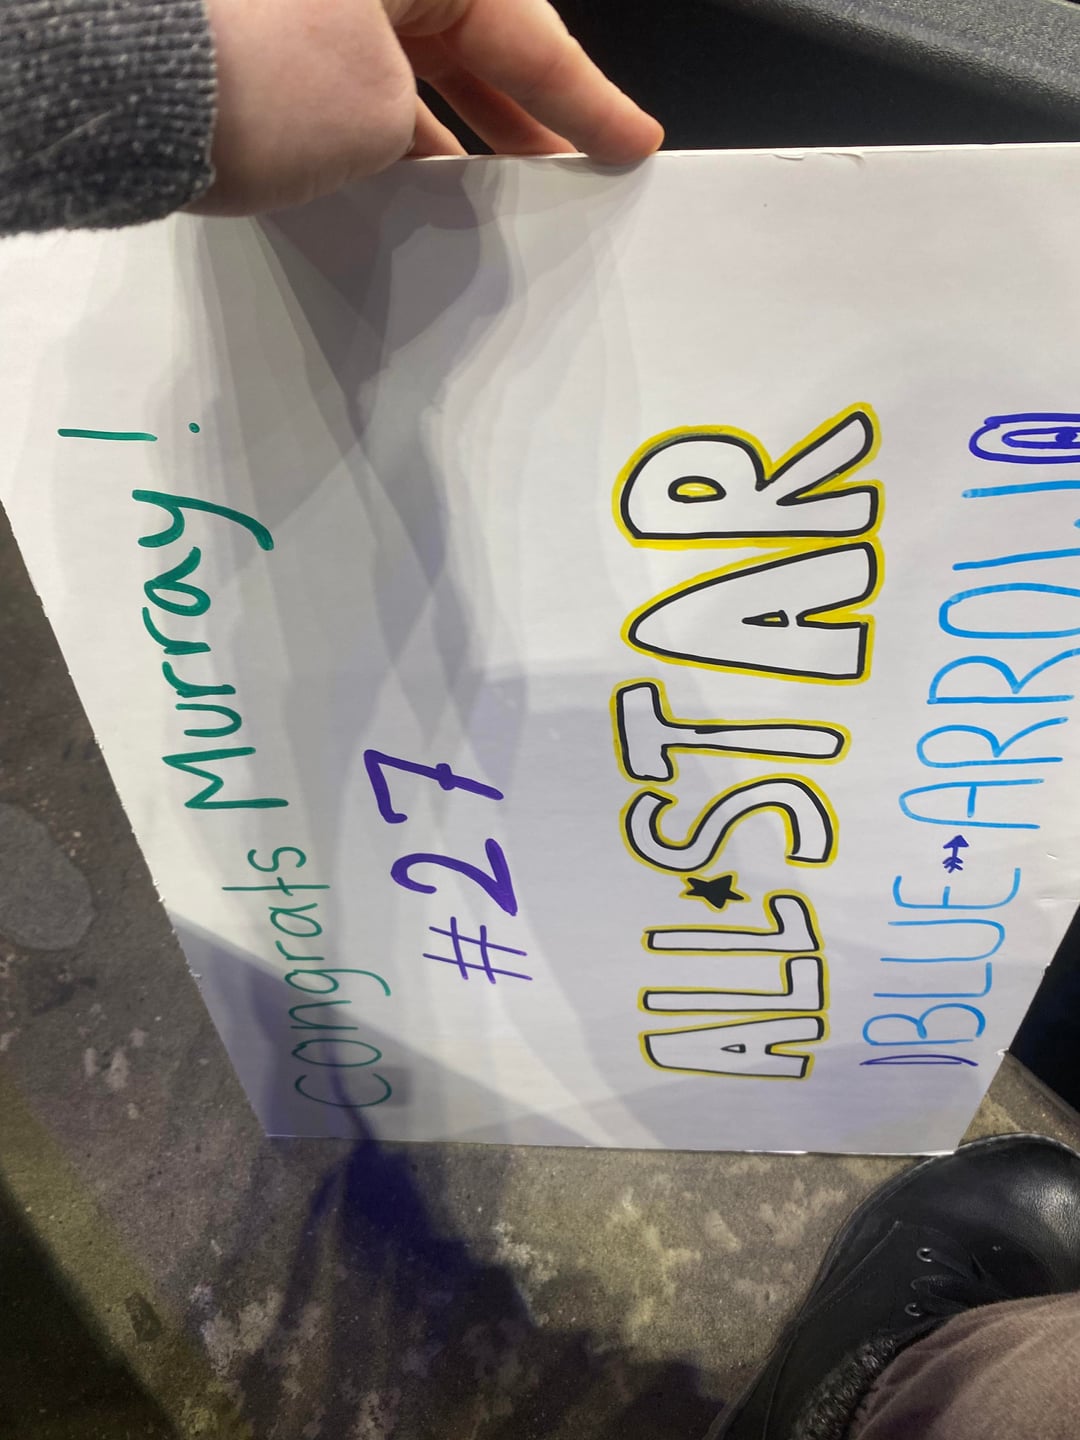 Congrats Murray!
#27
ALL★STAR
BLUE ARROW